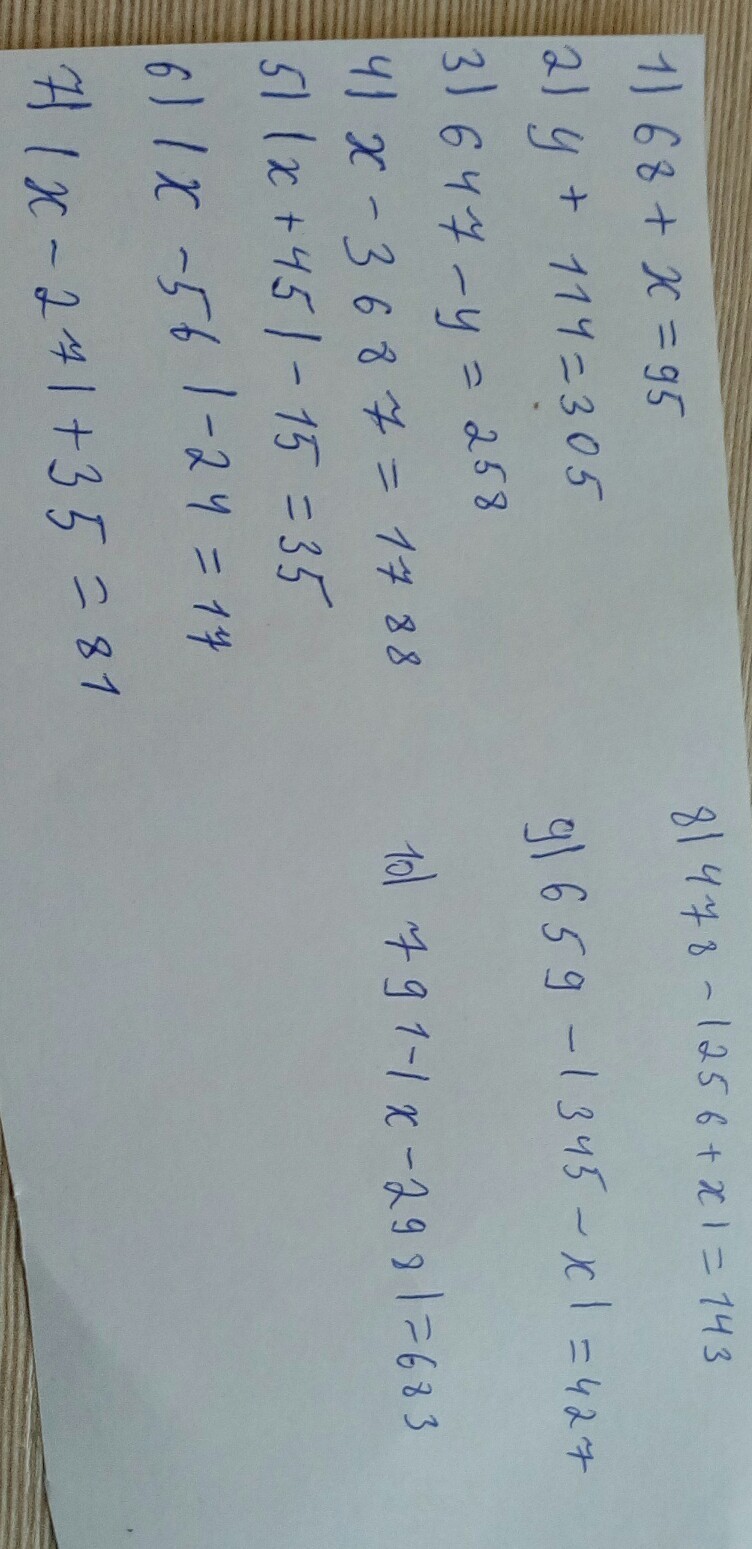 1) 68 + x = 95
2) y + 114 = 305
3) 647 - y = 258
4) x - 3687 = 1788
5) |x + 45| - 15 = 35
6) |x - 56| - 24 = 17
7) |x - 27| + 35 = 81
8) 478 - |256 + x| = 143
9) 659 - |345 - x| = 427
10) 791 - |x - 298| = 683